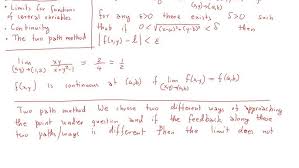 (x,y)→(a,b)
• Limits for functions of several variables
• Continuity
• The two path method
for any ε>0 there exists δ>0 such
that if 0<√(x-a)²+(y-b)² < δ then
|f(x,y) - l| < ε
lim (x,y)→(1,2) xy/x+y²-1 = 2/4 = 1/2
f(x,y) is continuous at (a,b) if lim (x,y)→(a,b) f(x,y) = f(a,b)
Two path method We choose two different ways of approaching
the point under question and if the feedback along those
two paths/ways is different then the limit does not